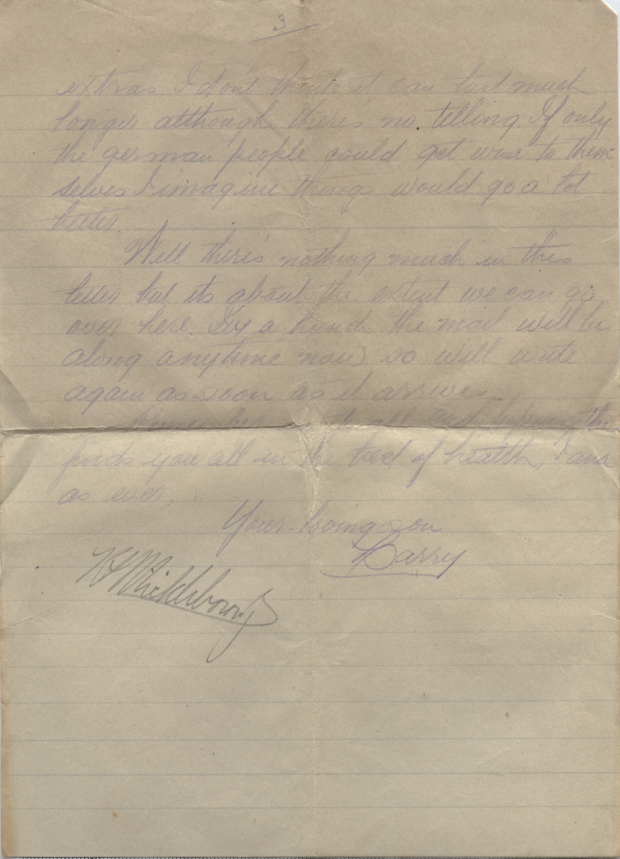 3
extras. I don't think it can last much
longer although there's no telling. If only
the german people could get wise to them
selves I imagine things would go a lot
better.
Well there's nothing much in this
letter but its about the extent we can go
over here. I've a hunch the mail will be
along anytime now so will write
again as soon as it arrives.
all and hoping this
finds you all in the best of health, I am
as ever,
Your loving son
Harry